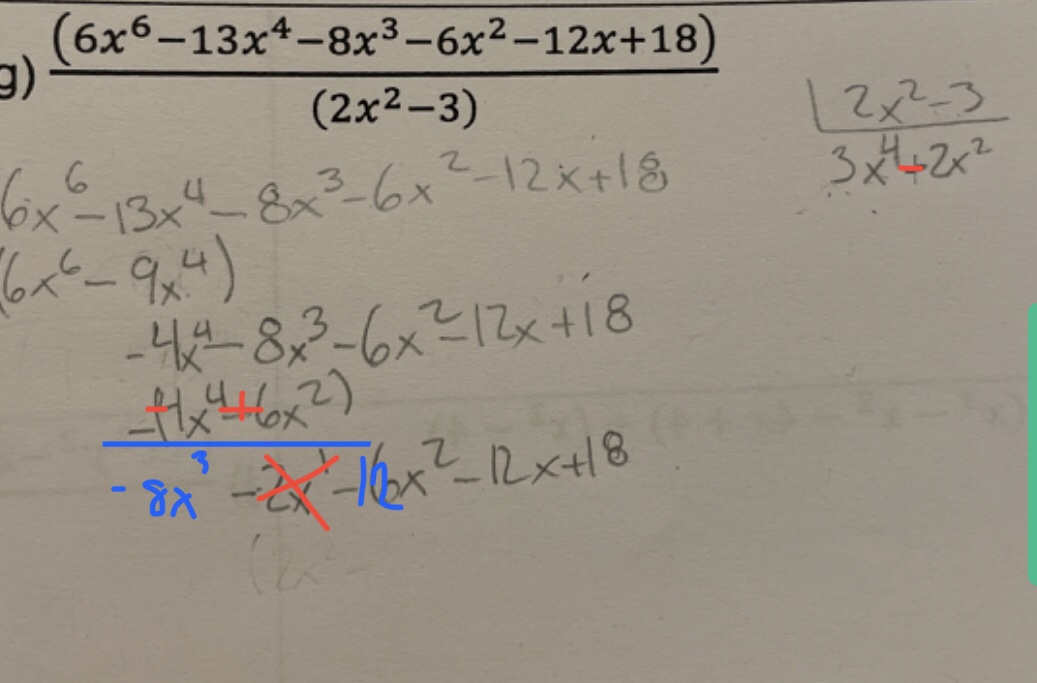 g) (6x⁶−13x⁴−8x³−6x²−12x+18)
(2x²−3)
2x²-3
3x⁴-2x²
6x⁶-13x⁴-8x³-6x²-12x+18
(6x⁶-9x⁴)
-4x⁴-8x³-6x²-12x+18
-(-4x⁴+6x²)
-8x³ -2x -12x²-12x+18
(2x²-